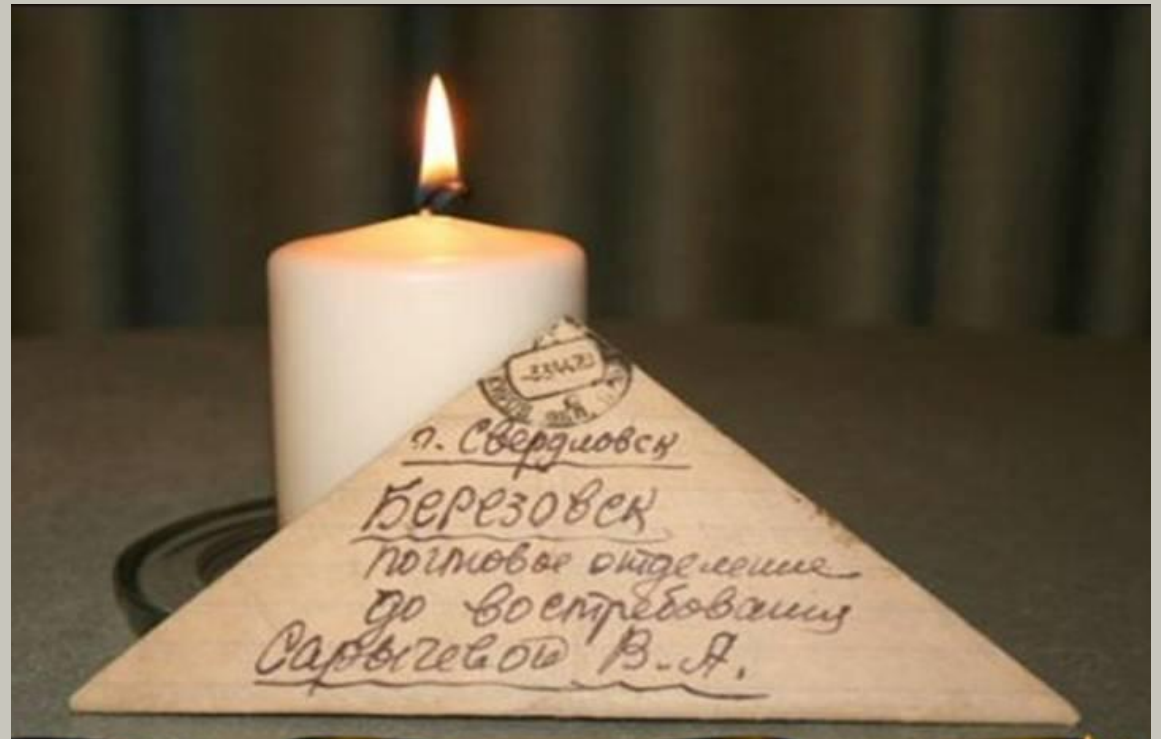 г. Свердловск
Березовск
почтовое отделение
до востребования
Сарычевой В.А.